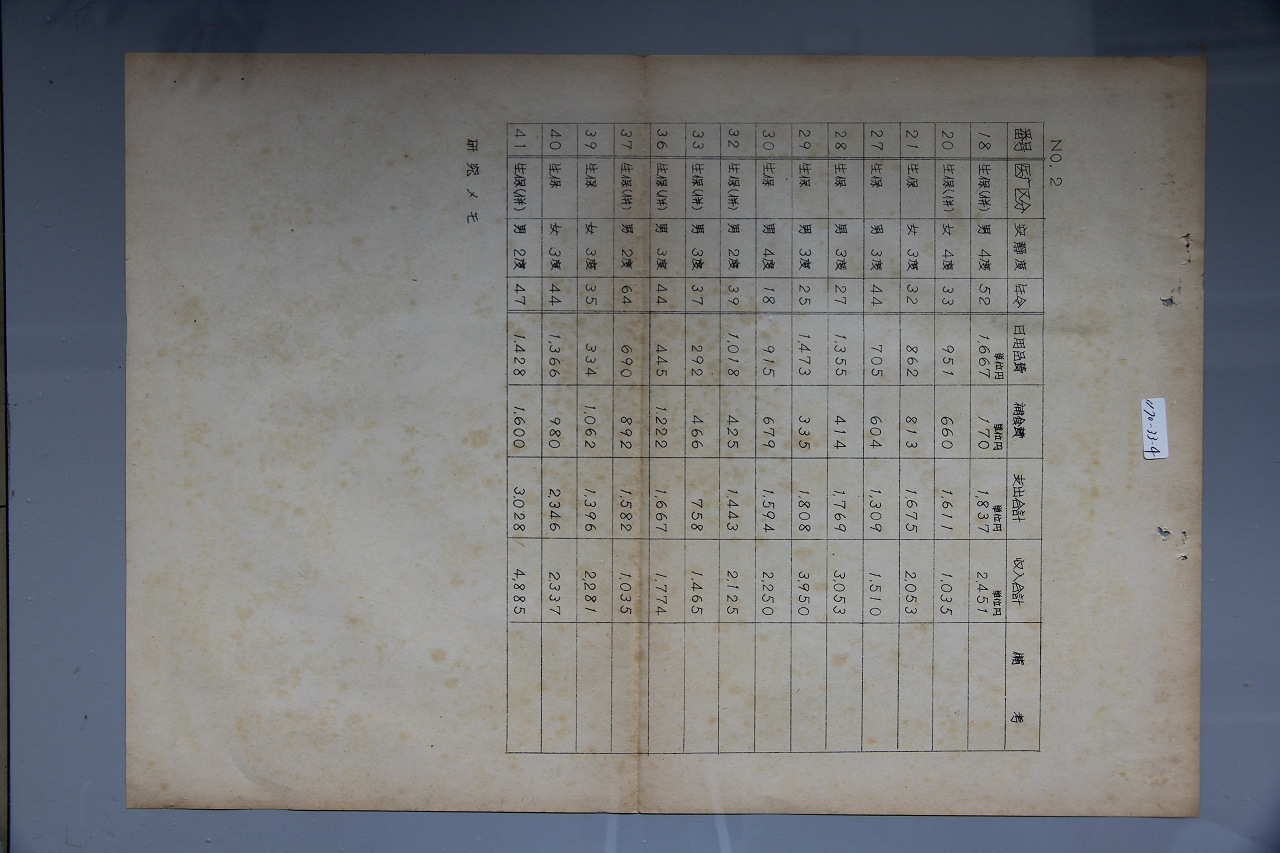 NO. 2
番号 医疒区分 安静度 年令 日用品費 補食費 支出合計 収入合計 備考
18 生保(併) 男 4度 52 単位円 1,667 単位円 170 単位円 1,837 単位円 2,451
20 生保(併) 女 4度 33 951 660 1,611 1,035
21 生保 女 3度 32 862 813 1,675 2,053
27 生保 男 3度 44 705 604 1,309 1,510
28 生保 男 3度 27 1,355 414 1,769 3,053
29 生保 男 3度 25 1,473 335 1,808 3,950
30 生保 男 4度 18 915 679 1,594 2,250
32 生保(併) 男 2度 39 1,018 425 1,443 2,125
33 生保(併) 男 3度 37 292 466 758 1,465
36 生保(併) 男 3度 44 445 1,222 1,667 1,774
37 生保(併) 男 2度 64 690 892 1,582 1,035
39 生保 女 3度 35 334 1,062 1,396 2,281
40 生保 女 3度 44 1,366 980 2,346 2,337
41 生保(併) 男 2度 47 1,428 1,600 3,028 4,885
研究メモ
1170-33-4